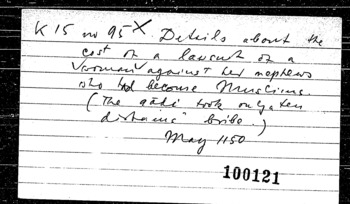 K 15 no 95 X Details about the
cost of a lawsuit of a
woman against her nephews
who had become Muslims.
(The qāḍī took only a ten
dirhams' bribe.)
May 1150
100121